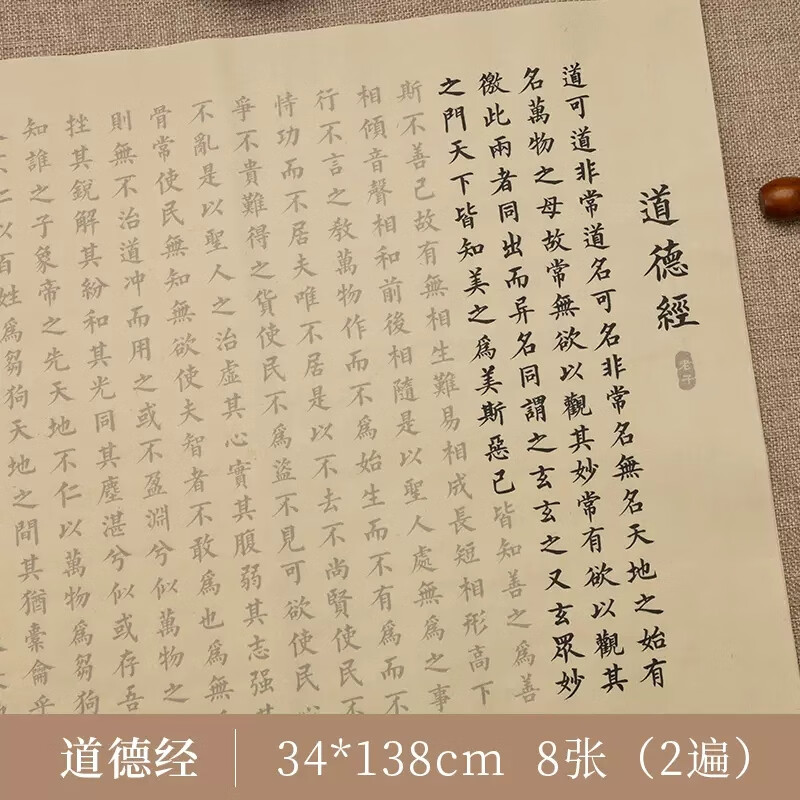 道德經
道可道非常道名可名非常名無名天地之始有
名萬物之母故常無欲以觀其妙常有欲以觀其
徼此兩者同出而异名同謂之玄玄之又玄眾妙
之門天下皆知美之爲美斯惡己皆知善之爲善
斯不善己故有無相生難易相成長短相形高下
相傾音聲相和前後相隨是以聖人處無爲之事
行不言之教萬物作而不爲始生而不有爲而不
恃功而不居夫唯不居是以不去不尚賢使民不
爭不貴難得之貨使民不爲盜不見可欲使民
不亂是以聖人之治虛其心實其腹弱其志強其
骨常使民無知無欲使夫智者不敢爲也爲無
則無不治道冲而用之或不盈淵兮似萬物之
挫其銳解其紛和其光同其塵湛兮似或存吾
知誰之子象帝之先天地不仁以萬物爲芻狗
不仁以百姓爲芻狗天地之間其猶橐龠乎
道德经 34*138cm 8张（2遍）